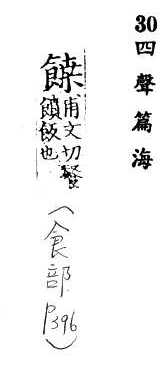 30四聲篇海
甫文切餐
飯也
(食部P396)